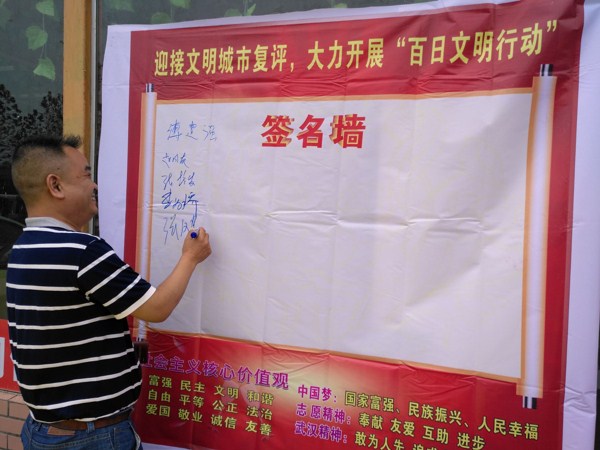 迎接文明城市复评，大力开展“百日文明行动”
签名墙
社会主义核心价值观
富强 民主 文明 和谐
自由 平等 公正 法治
爱国 敬业 诚信 友善
中国梦：国家富强、民族振兴、人民幸福
志愿精神：奉献 友爱 互助 进步
武汉精神：敢为人先 追